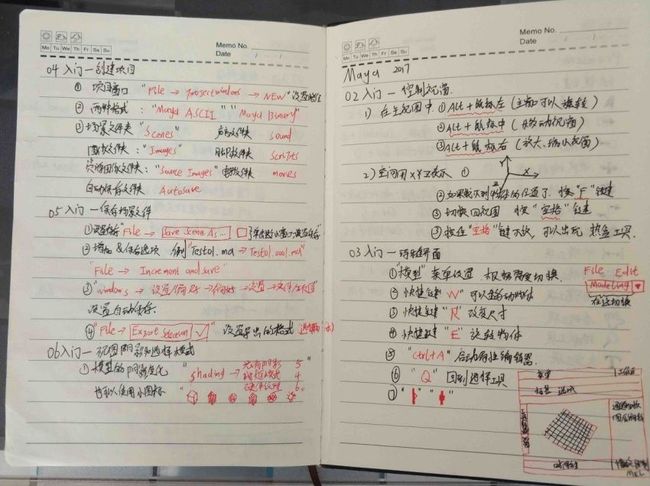 Memo No.
Mo Tu We Th Fr Sa Su
Date / /
04 入门—创建项目
① 项目窗口 "File → Project windows → NEW" 设置
② 两种格式: "Maya ASCII" "Maya Binary"
③ 场景文件夹 "Scenes" 声音文件夹 sound
图像文件夹: "Images" 脚本文件夹 scripts
"Source Images" movies
自动保存文件夹 Autosave
05 入门—保存场景文件
① File → Save Scene As...
② 增加&保存选项 例 "Test01.ma → Test01.001.ma"
"File → Increment and save"
③ "windows → 设置/首选项 → 首选项 → 设置 → 文件/
设置自动保存.
④ "File → Export Selection √" 设置导出的格式
06 入门—视图
① 模型的 "shading → 5
4
6
也可以使用小图标 "
Memo No.
Mo Tu We Th Fr Sa Su
Date / /
Maya 2017
02 入门—控制视图
1) 在主视图中 ① Alt + 鼠标左 (主视可以旋转)
② Alt + 鼠标中 (移动视图)
③ Alt + 鼠标右 (放大、缩小视图)
2) 空间用 XYZ 表示 ① Y X Z
② 如果找不到物体的位置了, 按 "F" 键
③ 切换四视图 按 "空格" 键
④ 按住 "空格" 键不放, 可以出现 热盒工具.
03 入门—界面
① "模型" 菜单设置 切换. File Edit
Modeling ▼
在这切换
② 快捷键 "W" 可以移动物体
③ 快捷键 "R" 改变尺寸
④ 快捷键 "E" 旋转物体
⑤ "ctrl A" 启动属性编辑器.
⑥ "Q" 回到选择工具
⑦
菜单
MEL